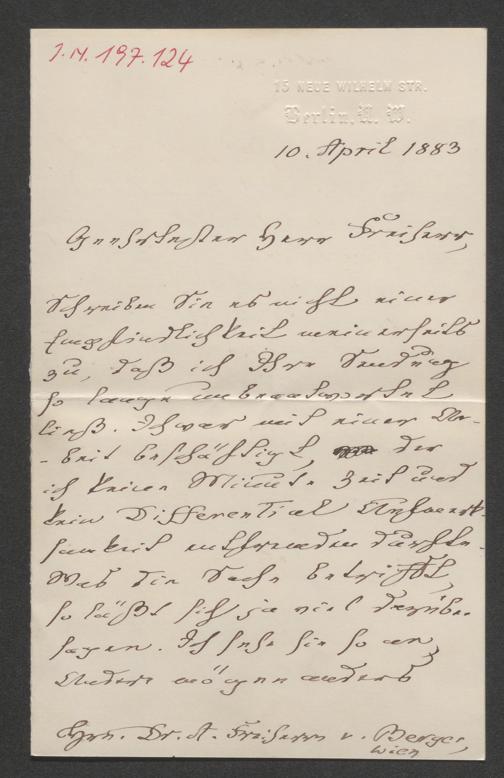 J.N. 197.124
15 NEUE WILHELM STR.
Berlin, N. W.
10. April 1883
Geehrtester Herr Freiherr,
Schreiben Sie es nicht einer
Empfindlichkeit meinerseits
zu, daß ich Ihre Sendung
so lange unbeantwortet
ließ. Ich war mit einer Ar-
-beit beschäftigt, der
ich keine Minute Zeit und
kein Differential Aufmerk-
samkeit entwenden durfte.
Was die Sache betrifft,
so läßt sich ja viel darüber
sagen. Ich sehe sie so an,
Andere mögen anders
Hrn. Dr. A. Freiherrn v. Berger,
Wien